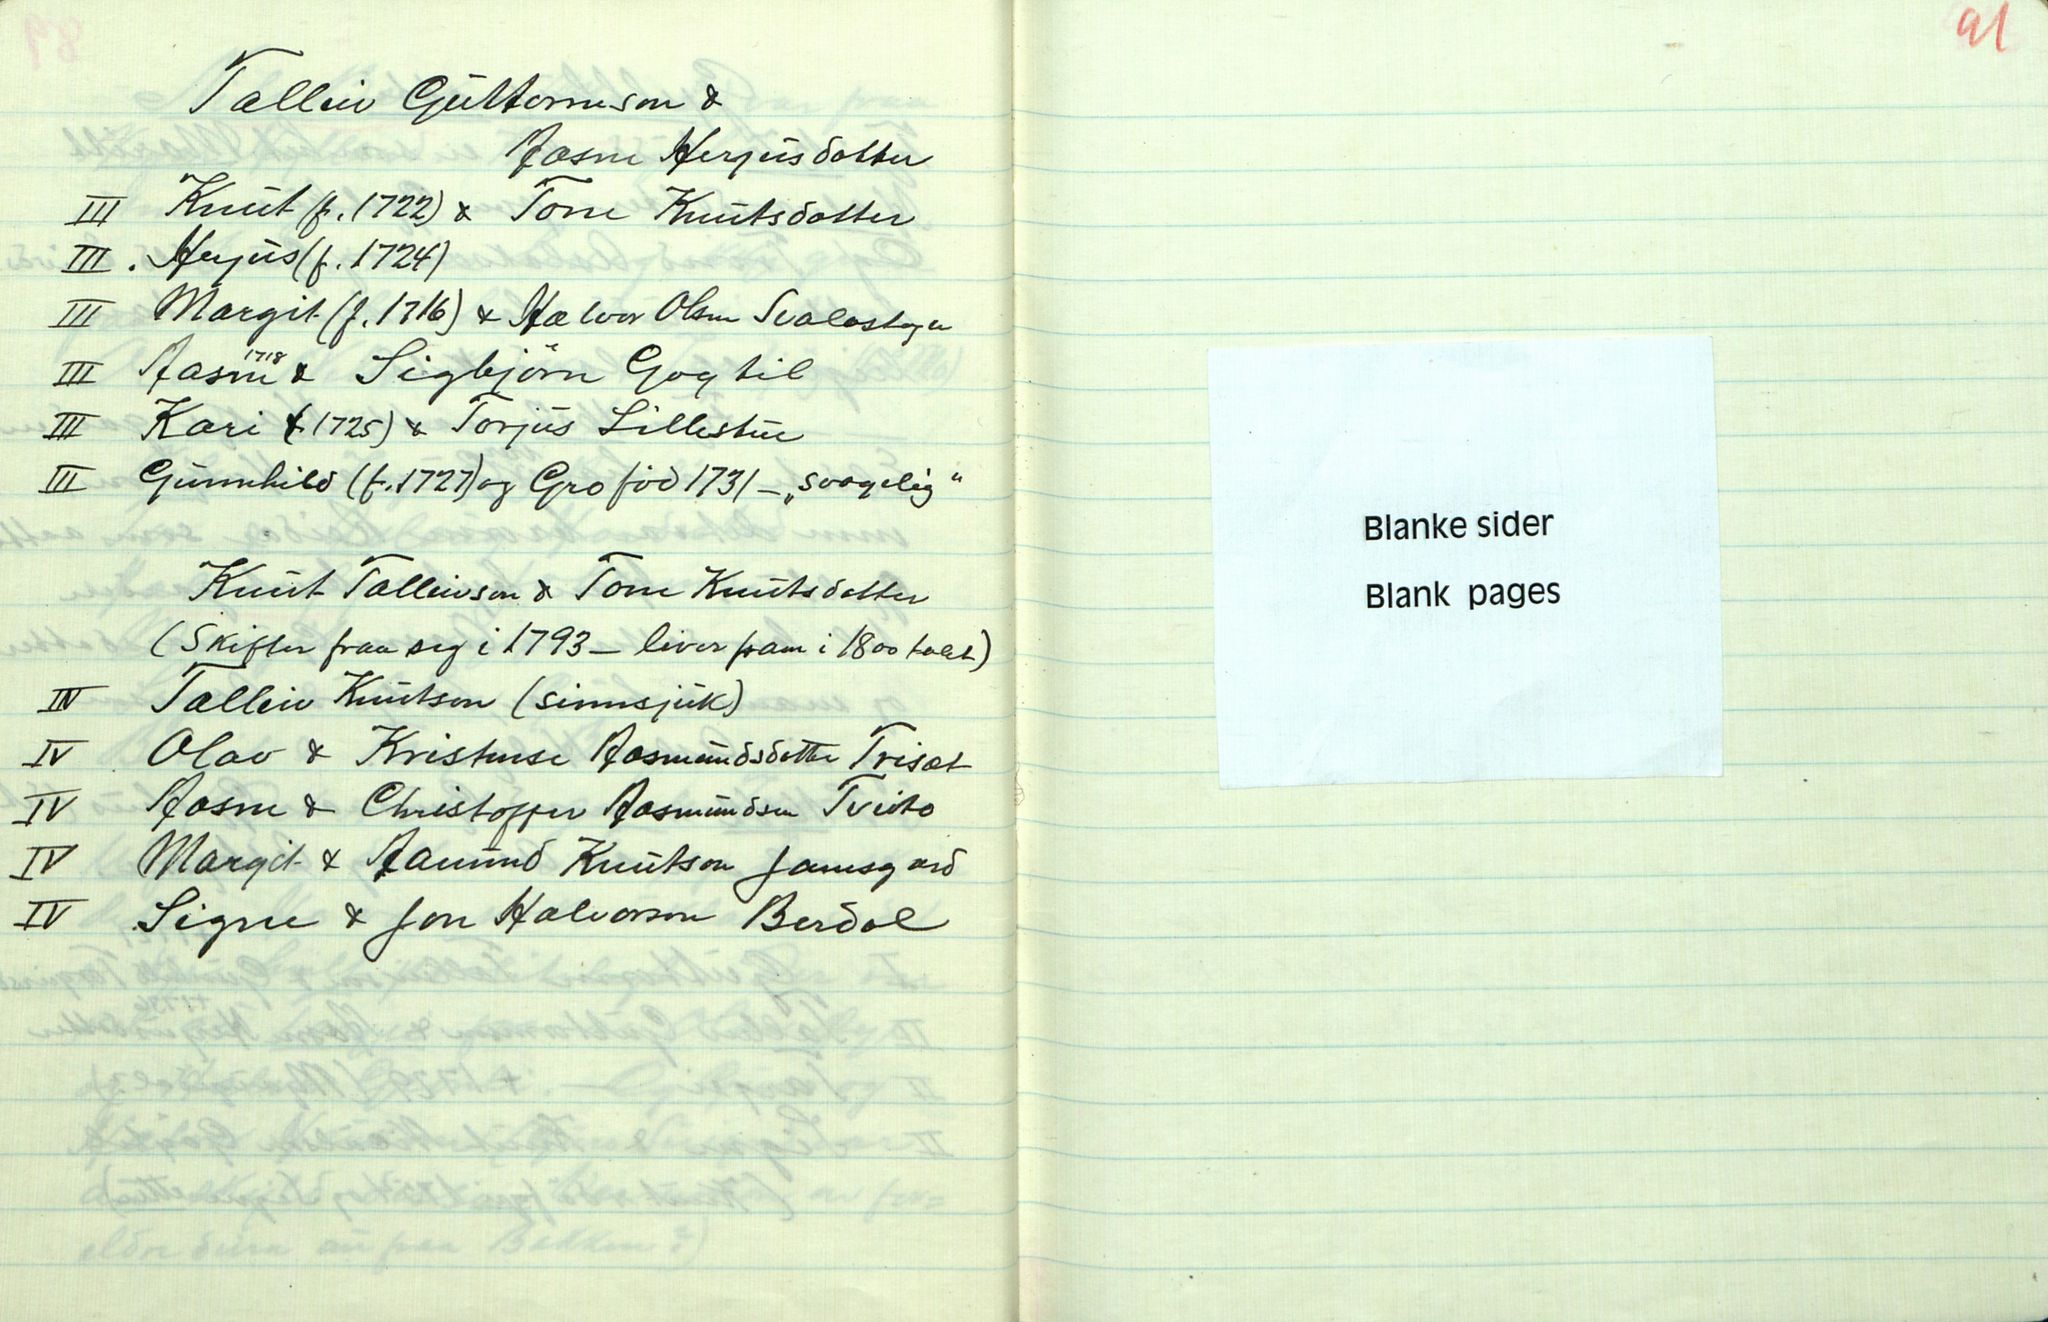 Talleiv Guttormson &
Aasne Herjusdotter
III Knut (f. 1722) & Tone Knutsdotter
III . Herjus (f. 1724)
III Margit (f. 1716) & Halvor Olsen Svalastoga
III Aasne 1718 & Sigbjörn Goytil
III Kari (f. 1725) & Torjus Lillestue
III Gunnhild (f. 1727) og Gro föd 1731 – „svagelig“
Knut Talleivson & Tone Knutsdotter
(Skifter fraa seg i 1793 – liver fram i 1800 talet)
IV Talleiv Knutson (sinnsjuk)
IV Olav & Kristense Aasmundsdotter Trisæt
IV Aasne & Christoffer Aasmundsen Tveito
IV Margit & Aamund Knutson Jamsgard
IV Signe & Jon Halvorson Berdal
91
Blanke sider
Blank pages